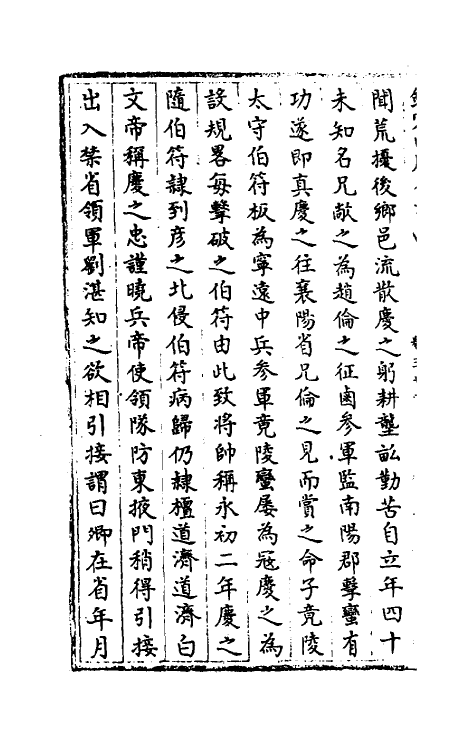 聞荒擾後鄉邑流散慶之躬耕壟畝勤苦自立年四十
未知名兄敞之為趙倫之征鹵參軍監南陽郡擊蠻有
功遂即真慶之往襄陽省兄倫之見而賞之命子竟陵
太守伯符板為寧遠中兵參軍竟陵蠻屢為寇慶之為
設規畧每擊破之伯符由此致將帥稱永初二年慶之
隨伯符隷到彦之北侵伯符病歸仍隷檀道濟道濟白
文帝稱慶之忠謹曉兵帝使領隊防東掖門稍得引接
出入禁省領軍劉湛知之欲相引接謂曰卿在省年月